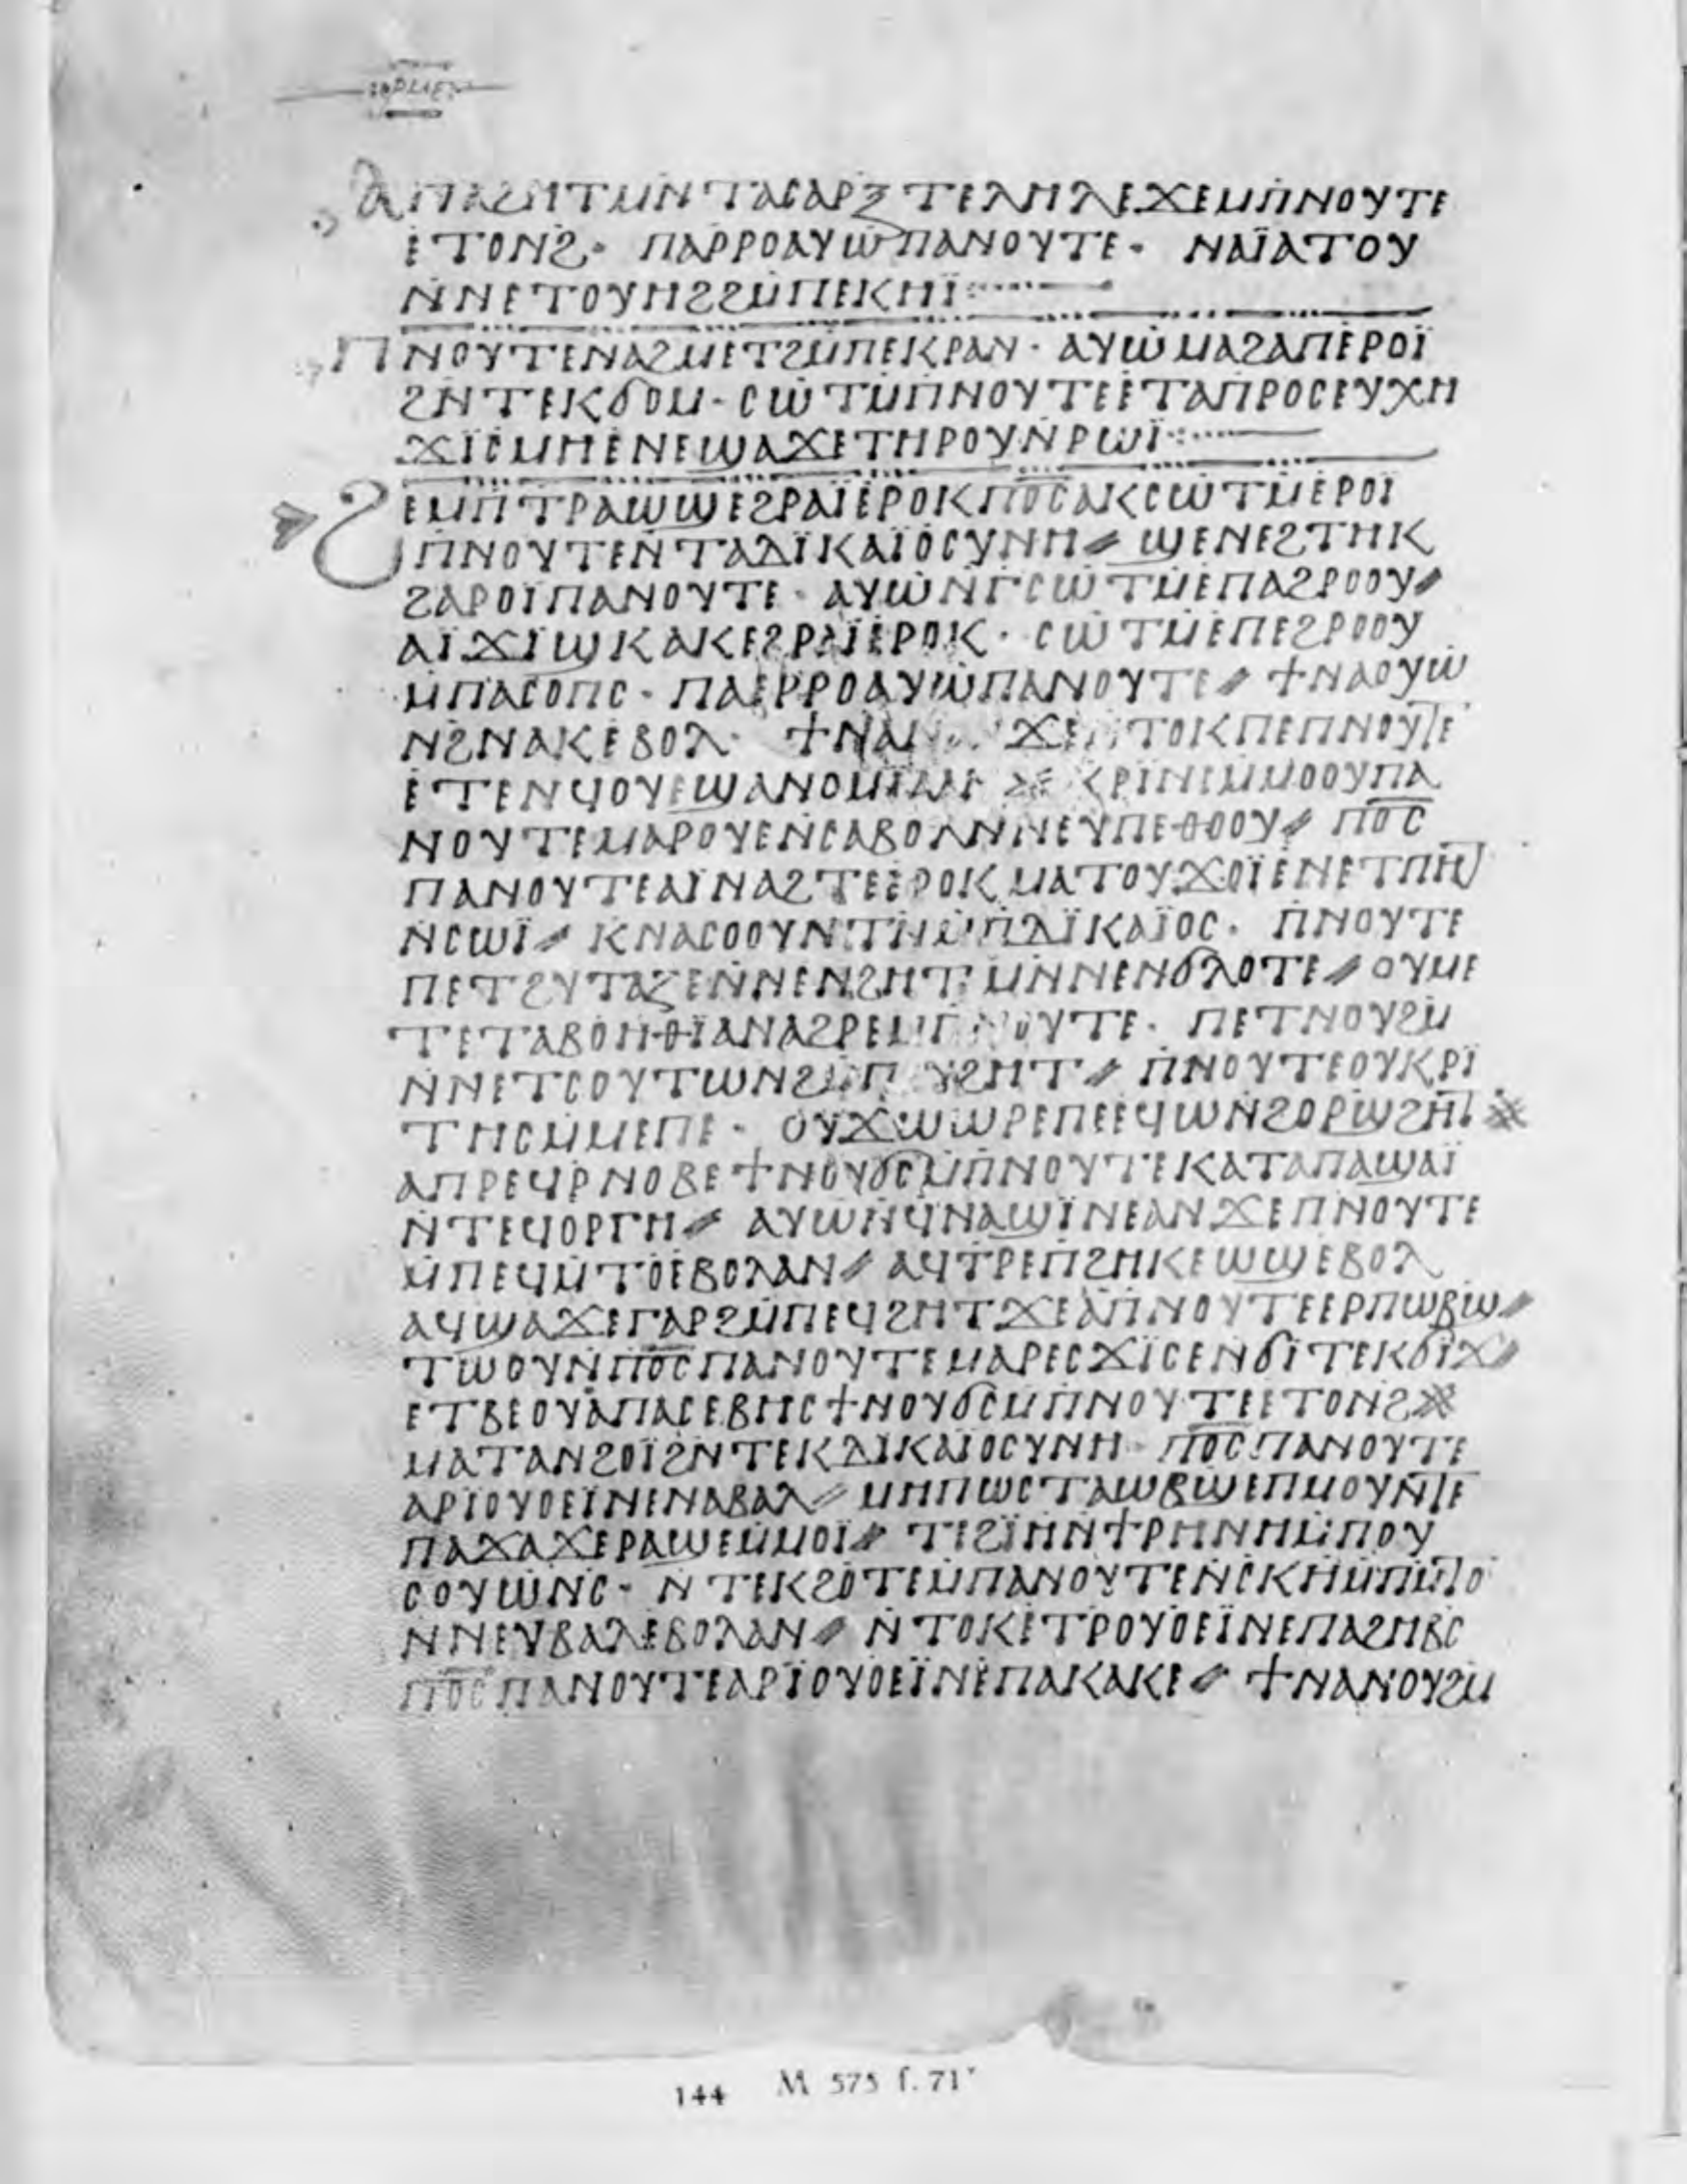 ⲁⲡⲁϩⲏⲧⲙⲛⲧⲁⲥⲁⲣⲝⲧⲉⲗⲏⲗⲉϫⲉⲙⲡⲛⲟⲩⲧⲉ
ⲉⲧⲟⲛϩ· ⲡⲁⲣⲣⲟⲁⲩⲱⲡⲁⲛⲟⲩⲧⲉ· ⲛⲁⲓ̈ⲁⲧⲟⲩ
ⲛ̇ⲛⲉⲧⲟⲩⲏϩϩⲙ̇ⲡⲉⲕⲏⲓ̈
ⲡⲛⲟⲩⲧⲉⲛⲁϩⲙⲉⲧϩⲙⲡⲉⲕⲣⲁⲛ· ⲁⲩⲱⲙⲁϩⲁⲡⲉⲣⲟⲓ̈
ϩⲛⲧⲉⲕϭⲟⲙ· ⲥⲱⲧⲙ̇ⲡⲛⲟⲩⲧⲉⲉⲧⲁⲡⲣⲟⲥⲉⲩⲭⲏ
ϫⲓⲥⲙⲏⲉⲛⲉϣⲁϫⲉⲧⲏⲣⲟⲩⲛ̇ⲣⲱⲓ̈
ϩⲉⲙⲡⲧⲣⲁⲱϣⲉϩⲣⲁⲓ̈ⲉⲣⲟⲕⲡⲟ̅ⲥ̅ⲁⲕⲥⲱⲧⲙ̇ⲉⲣⲟⲓ̈
ⲡⲛⲟⲩⲧⲉⲛ̇ⲧⲁⲇⲓ̈ⲕⲁⲓ̈ⲟⲥⲩⲛⲏ⸗ ϣⲉⲛⲉϩⲧⲏⲕ
ϩⲁⲣⲟⲓ̈ⲡⲁⲛⲟⲩⲧⲉ· ⲁⲩⲱⲛ̇ⲅⲥⲱⲧⲙ̇ⲉⲡⲁϩⲣⲟⲟⲩ⸗
ⲁⲓ̈ϫⲓϣⲕⲁⲕⲉϩⲣⲁⲓ̈ⲉⲣⲟⲕ· ⲥⲱⲧⲙ̇ⲉⲡⲉϩⲣⲟⲟⲩ
ⲙ̇ⲡⲁⲥⲟⲡⲥ· ⲡⲁⲉⲣⲣⲟⲁⲩⲱⲡⲁⲛⲟⲩⲧⲉ⸗ ϯⲛⲁⲟⲩⲱ
ⲛϩⲛⲁⲕⲉⲃⲟⲗ· ϯⲛⲁ ϫⲉ ⲛⲧⲟⲕⲡⲉⲡⲛⲟⲩⲧⲉ
ⲉⲧⲉⲛϥⲟⲩⲉϣⲁⲛⲟⲙⲓⲁⲁⲛ ⲕⲣⲓⲛⲉⲙⲙⲟⲟⲩⲡⲁ
ⲛⲟⲩⲧⲉⲙⲁⲣⲟⲩⲉⲛ̇ⲥⲁⲃⲟⲗⲛ̇ⲛⲉⲩⲡⲉⲑⲟⲟⲩ⸗ ⲡⲟ̅ⲥ̅
ⲡⲁⲛⲟⲩⲧⲉⲁⲓ̈ⲛⲁϩⲧⲉⲉⲣⲟⲕⲙⲁⲧⲟⲩϫⲟⲓ̈ⲉⲛⲉⲧⲡⲏⲧ
ⲛ̇ⲥⲱⲓ̈⸗ ⲕⲛⲁⲥⲟⲟⲩⲛⲧⲛ̇ⲙ̇ⲡⲇⲓ̈ⲕⲁⲓ̈ⲟⲥ· ⲡ̇ⲛⲟⲩⲧⲉ
ⲡⲉⲧϩⲩⲧⲁⲍⲉⲛ̇ⲛⲉⲛϩⲏⲧⲙⲛ̇ⲛⲉⲛϭⲗⲟⲧⲉ⸗ ⲟⲩⲙⲉ
ⲧⲉⲧⲁⲃⲟⲏⲑⲓ̈ⲁⲛⲁϩⲣⲉⲙⲡⲛⲟⲩⲧⲉ· ⲡⲉⲧⲛⲟⲩϩⲙ̇
ⲛ̇ⲛⲉⲧⲥⲟⲩⲧⲱⲛϩⲙ̇ⲡ ⲩϩⲏⲧ⸗ ⲡ̇ⲛⲟⲩⲧⲉⲟⲩⲕⲣⲓ̈
ⲧⲏⲥⲙ̇ⲙⲉⲡⲉ· ⲟⲩϫⲱⲱⲣⲉⲡⲉⲉϥⲱⲛ̇ϩⲟⲣϣϩⲏⲧ※
ⲁⲡⲣⲉϥⲣ̇ⲛⲟⲃⲉϯⲛⲟⲩϭⲥⲙ̇ⲡⲛⲟⲩⲧⲉⲕⲁⲧⲁⲡⲁϣⲁⲓ̈
ⲛ̇ⲧⲉϥⲟⲣⲅⲏ⸗ ⲁⲩⲱⲛ̇ϥⲛⲁϣⲓ̈ⲛⲉⲁⲛϫⲉⲡⲛⲟⲩⲧⲉ
ⲙ̇ⲡⲉϥⲙ̇ⲧⲟⲉⲃⲟⲗⲁⲛ⸗ ⲁϥⲧⲣⲉⲡϩⲏⲕⲉⲱϣⲉⲃⲟⲗ
ⲁϥϣⲁϫⲉⲅⲁⲣϩⲙ̇ⲡⲉϥϩⲏⲧϫⲉⲁⲡ̇ⲛⲟⲩⲧⲉⲉⲣⲡⲱⲃϣ⸗
ⲧⲱⲟⲩⲛ̇ⲡⲟ̅ⲥ̅ⲡⲁⲛⲟⲩⲧⲉⲙⲁⲣⲉⲥϫⲓ̈ⲥⲉⲛ̇ϭⲓ̈ⲧⲉⲕϭⲓ̈ϫ⸗
ⲉⲧⲃⲉⲟⲩⲁⲡⲁⲥⲉⲃⲏⲥϯⲛⲟⲩϭⲥⲙ̇ⲡⲛⲟⲩⲧⲉⲉⲧⲟⲛϩ※
ⲙⲁⲧⲁⲛϩⲟⲓ̈ϩⲛ̇ⲧⲉⲕⲇⲓⲕⲁⲓ̈ⲟⲥⲩⲛⲏ· ⲡⲟ̅ⲥ̅ⲡⲁⲛⲟⲩⲧⲉ
ⲁⲣⲓⲟⲩⲟⲉⲓ̈ⲛⲉⲛⲁⲃⲁⲗ⸗ ⲙⲏⲡⲱⲥⲧⲁⲱⲃϣⲉⲡⲙⲟⲩⲛ̇ⲧⲉ
ⲡⲁϫⲁϫⲉⲣⲁϣⲉⲙ̇ⲙⲟⲓ̈⸗ ⲧⲉϩⲓ̈ⲏⲛ̇ϯⲣⲏⲛⲏⲙ̇ⲡⲟⲩ
ⲥⲟⲩⲱⲛⲥ· ⲛ̇ⲧⲉⲕϩⲟⲧⲉⲙ̇ⲡⲁⲛⲟⲩⲧⲉⲛ̇ⲥⲕⲏⲙ̇ⲡⲙ̇ⲧⲟ
ⲛ̇ⲛⲉⲩⲃⲁⲗⲉⲃⲟⲗⲁⲛ⸗ ⲛ̇ⲧⲟⲕⲉⲧⲣⲟⲩⲟⲉⲓ̈ⲛⲉⲡⲁϩⲏⲃⲥ
ⲡⲟ̅ⲥ̅ⲡⲁⲛⲟⲩⲧⲉⲁⲣⲓ̈ⲟⲩⲟⲉⲓ̈ⲛⲉⲡⲁⲕⲁⲕⲉ⸗ ϯⲛⲁⲛⲟⲩϩⲙ̇
144 M 575 f. 71ᵛ